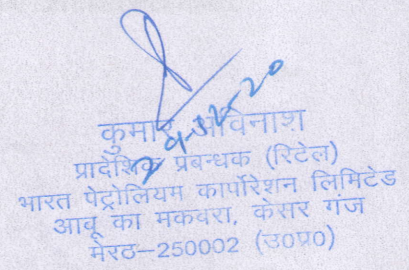 कुमार अविनाश
29-12-20
प्रादेशिक प्रबन्धक (रिटेल)
भारत पेट्रोलियम कार्पोरेशन लिमिटेड
आबू का मकबरा, केसर गंज
मेरठ-250002 (उ०प्र०)